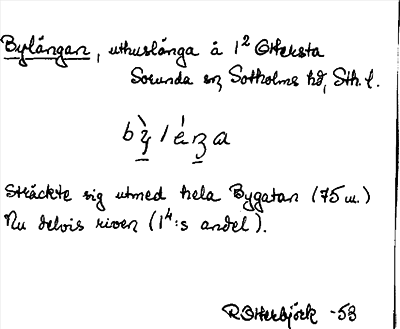 Bylängan, uthuslänga å 1² Otteksta
Sorunda sn, Sotholms hd, Sth. l.
bỳ̱léŋa
Sträckte sig utmed hela Bygatan (75 m.)
Nu delvis riven (1⁴:s andel).
R Otterbjörk -53